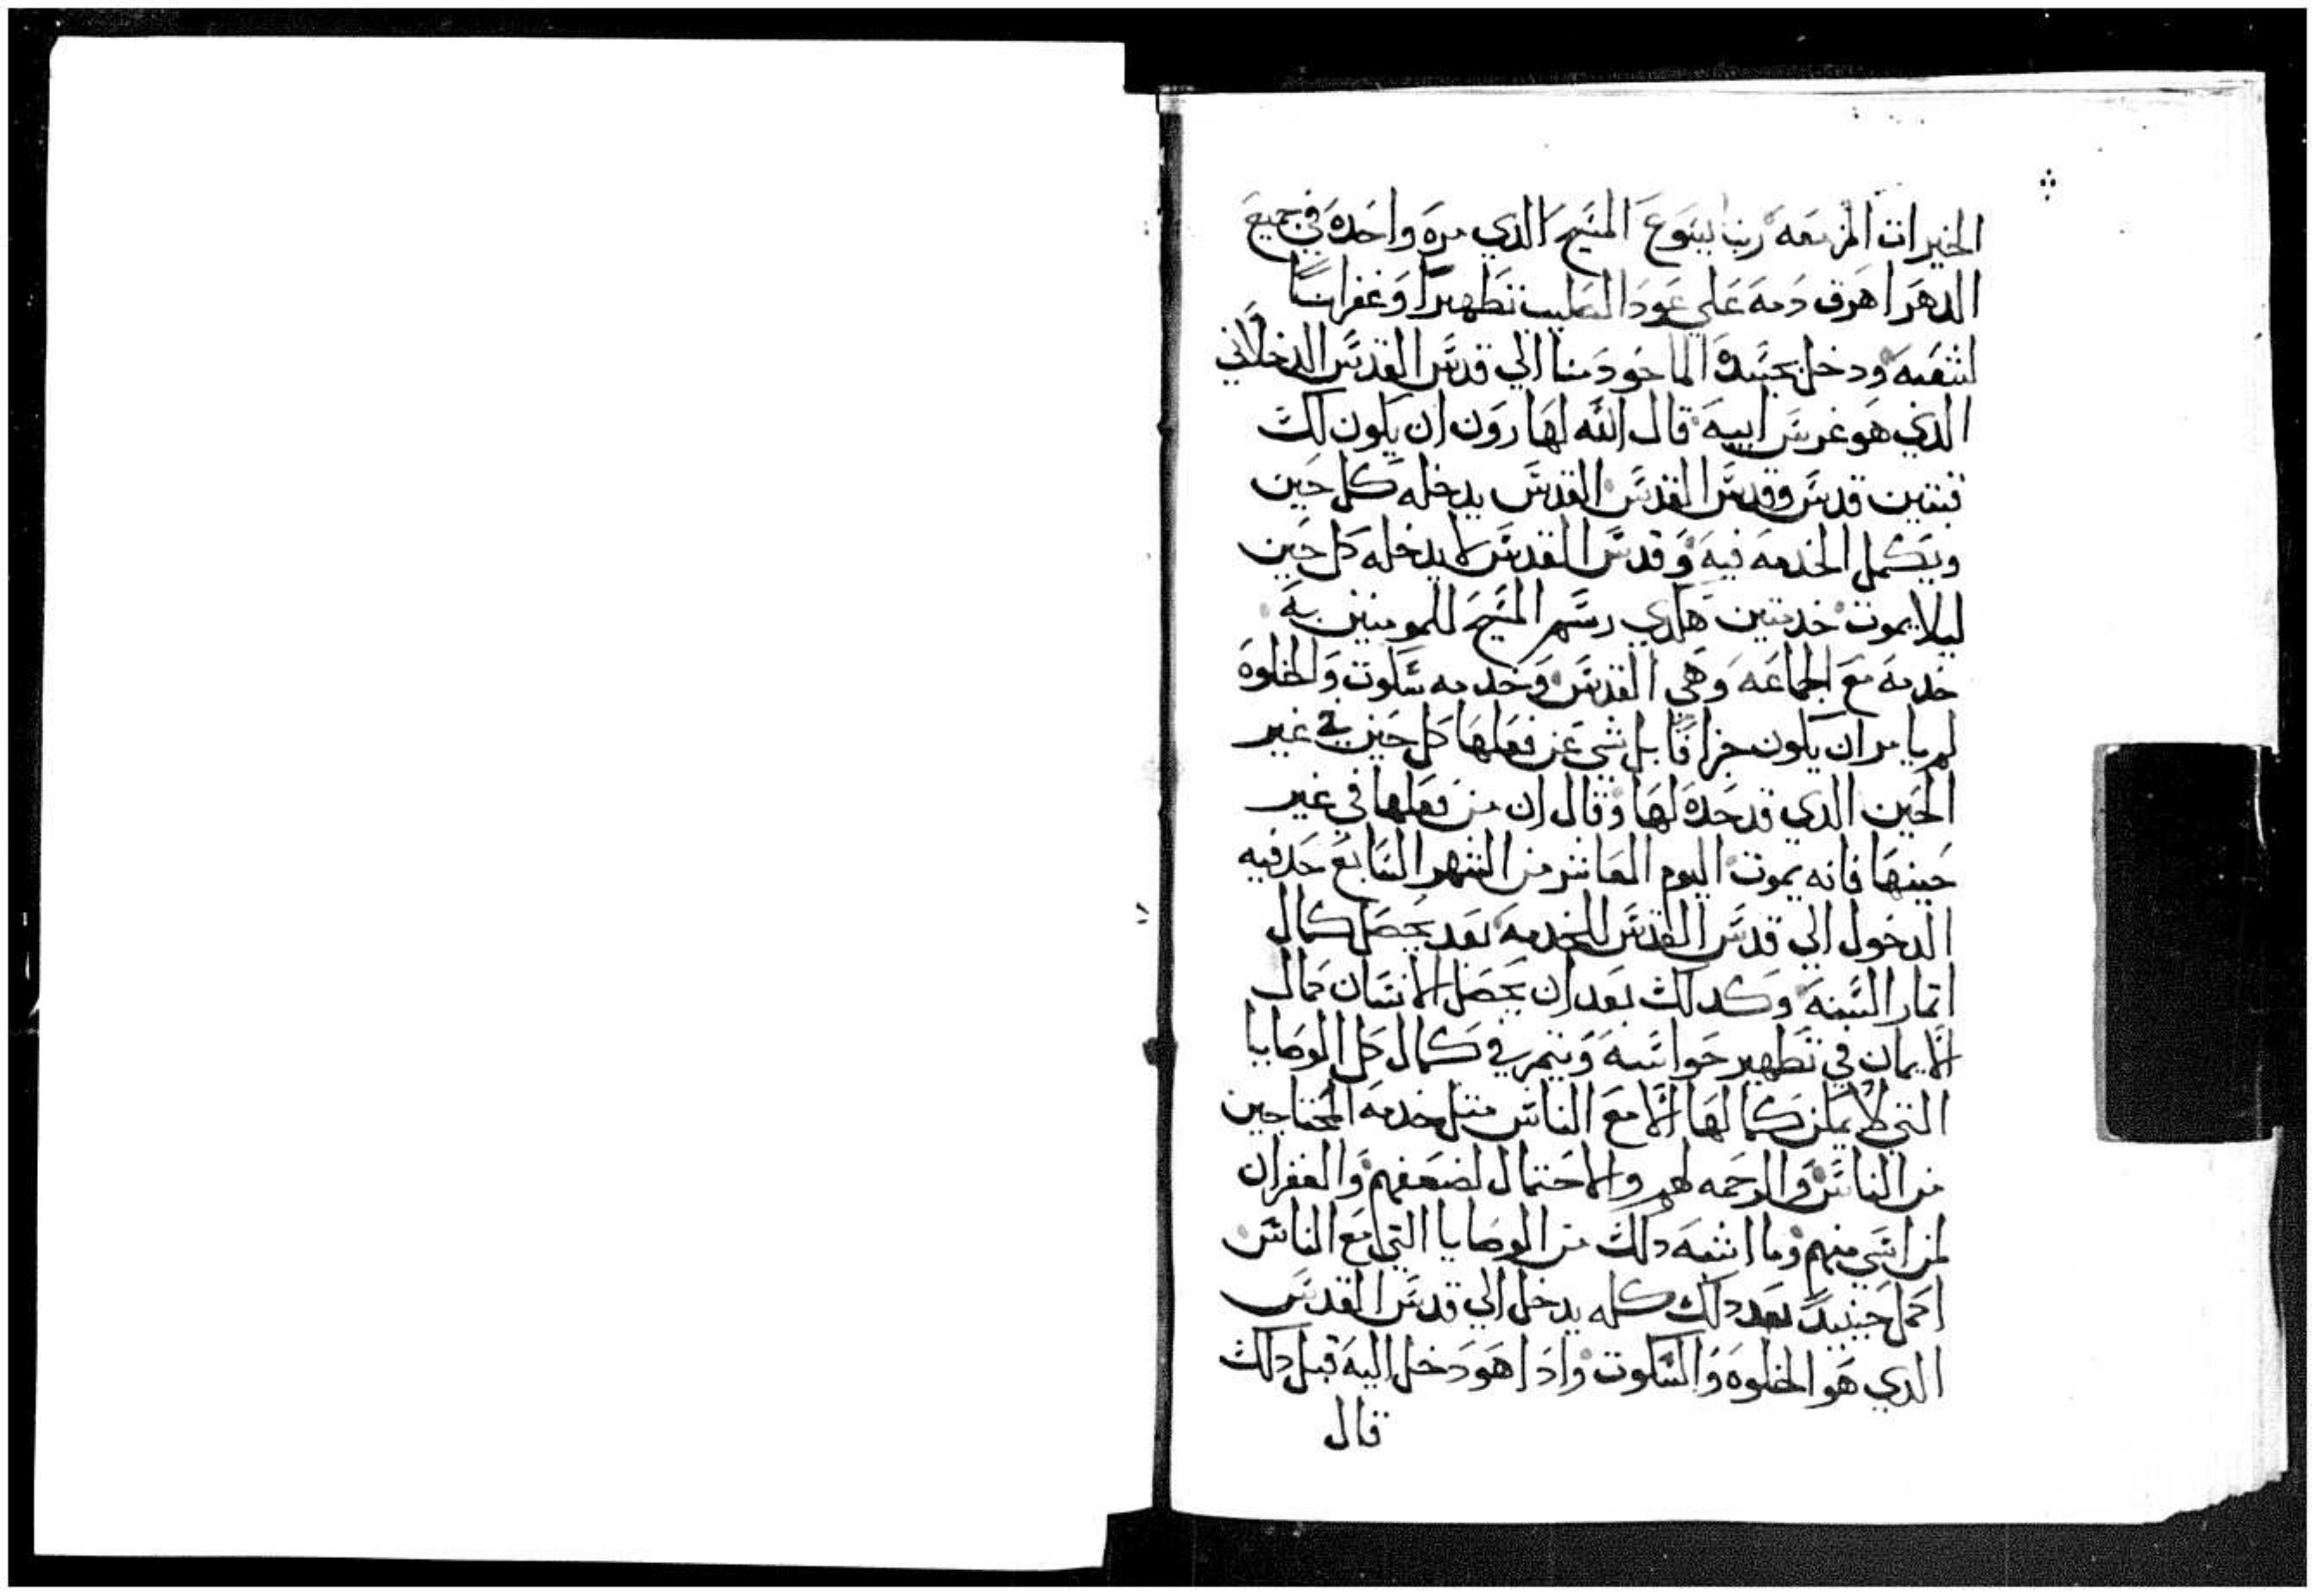 الخيرات المزمعه ربنا يسوع المسيح الدي مره واحده في جميع
الدهر اهرق دمه علي عود الصليب تطهيرا وغفرانا
لشعبه ودخل بجسده الماخود منا الي قدس القدس الدخلاني
الدي هو غرس ابيه قال الله لهارون ان يكون لك
قبتين قدس وقدس القدس القدس يدخله كل حين
ويكمل الخدمه فيه وقدس القدس لا يدخله كل حين
ليلا يموت خدمتين هكدي رسم المسيح للمومنين به
خدمه مع الجماعه وهي القدس وخدمه سكوت والخلوه
لم يامر ان يكون جزافا بل نهي عن فعلها كل حين في غير
الحين الدي قد حده لها وقال ان من فعلها في غير
حينها فانه يموت اليوم العاشر من الشهر السابع حد فيه
الدخول الي قدس القدس للخدمه بعد يحصل كمال
اتمار السنه وكدلك بعد ان يحصل الانسان كمال
الايمان في تطهير حواسه ويتم في كمال كل الوصايا
التي لا يمكن كمالها الا مع الناس متل خدمه المحتاجين
من الناس والرحمه لهم والاحتمال لضعفهم والغفران
لمن اسي منهم وما اشبه دلك من الوصايا التي مع الناس
اكمل حينيد بعد دلك كله يدخل الي قدس القدس
الدي هو الخلوه والسكوت وادا هو دخل اليه قبل دلك
قال